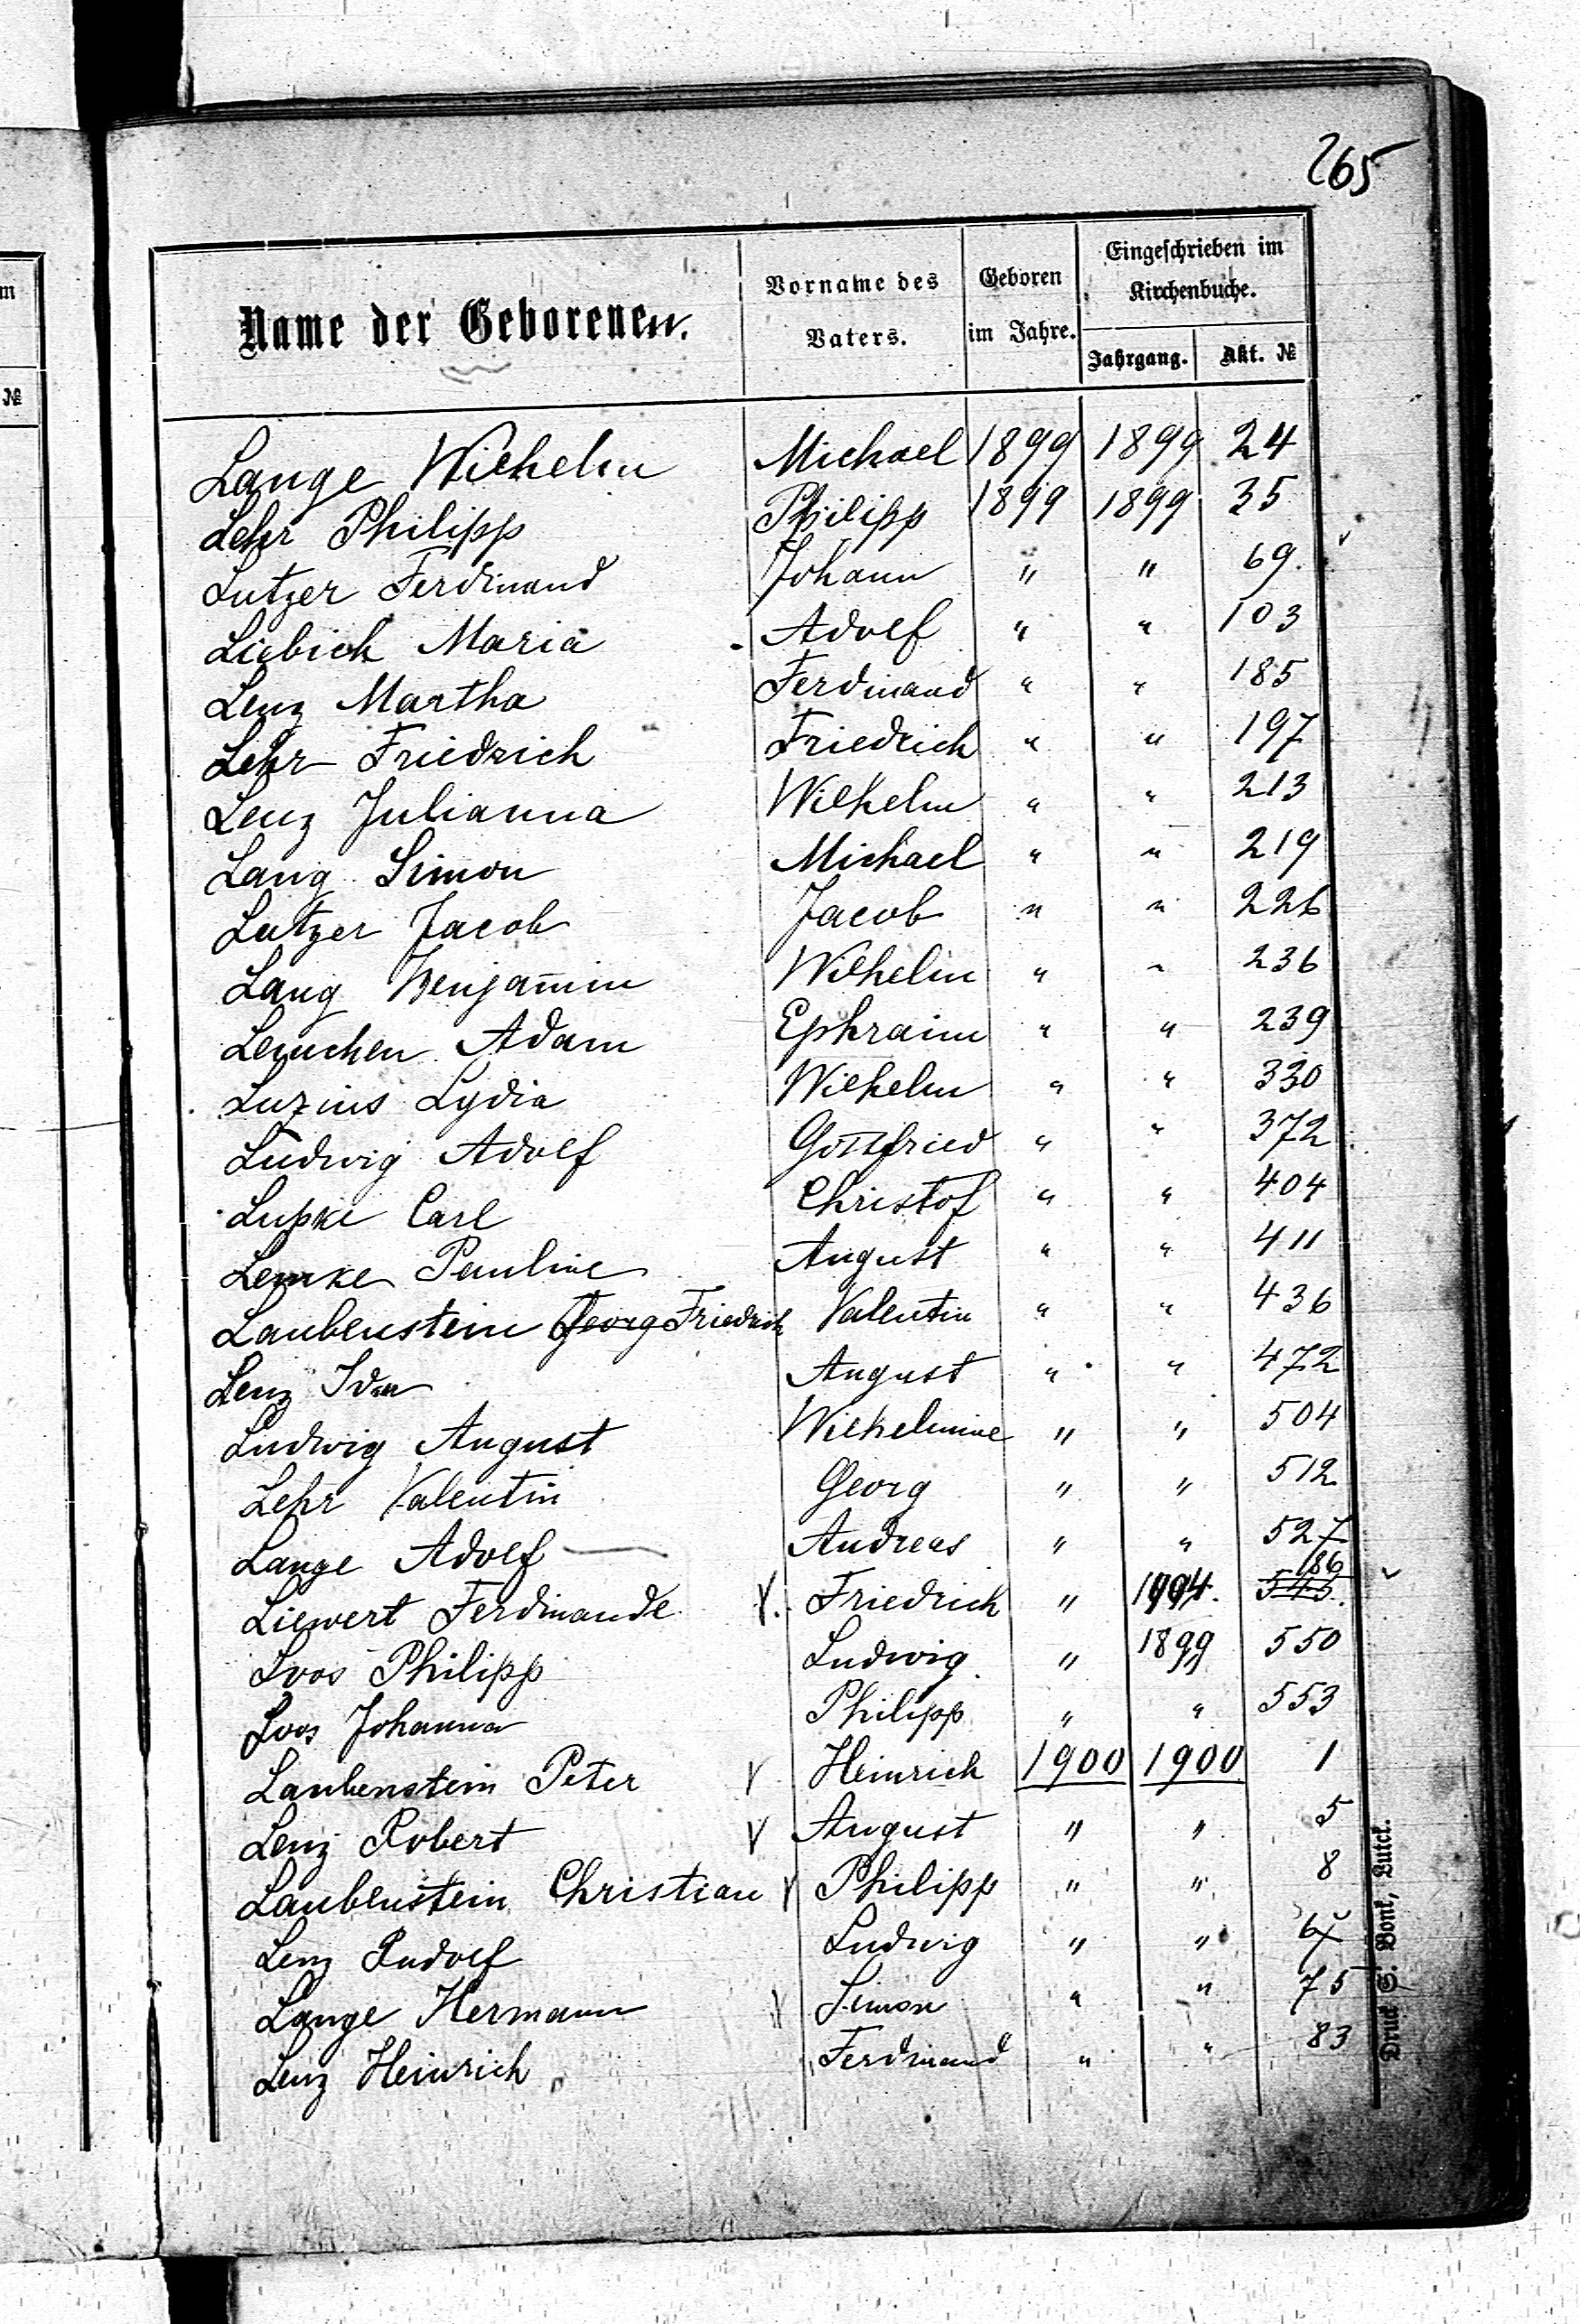 265
m
№
Name der Geborenen. Vorname des Vaters. Geboren im Jahre. Eingeschrieben im Kirchenbuche.
Jahrgang. Akt. №
Lange Wilhelm Michael 1899 1899 24
Lehr Philipp Philipp 1899 1899 35
Lutzer Ferdinand Johann " " 69.
Liebich Maria Adolf " " 103
Lenz Martha Ferdinand " " 185
Lehr Friedrich Friedrich " " 197
Lenz Julianna Wilhelm " " 213
Lang Simon Michael " " 219
Lutzer Jacob Jacob " " 226
Lang Benjamin Wilhelm " " 236
Lemchen Adam Ephraim " " 239
Luzius Lydia Wilhelm " " 330
Ludwig Adolf Gottfried " " 372
Lupke Carl Christof " " 404
Lemke Pauline August " " 411
Laubenstein Georg Friedrich Valentin " " 436
Lenz Ida August " " 472
Ludwig August Wilhelmine " " 504
Lehr Valentin Georg " " 512
Lange Adolf Andreas " " 527
Liewert Ferdinande Friedrich " 1904. 545. 186
Loos Philipp Ludwig " 1899 550
Loos Johanna Philipp " " 553
Laubenstein Peter Heinrich 1900 1900 1
Lenz Robert August " " 5
Laubenstein Christian Philipp " " 8
Lenz Rudolf Ludwig " " 67
Lange Hermann Simon " " 75
Lenz Heinrich Ferdinand " " 83
Druck S. Bonk, Lutck.